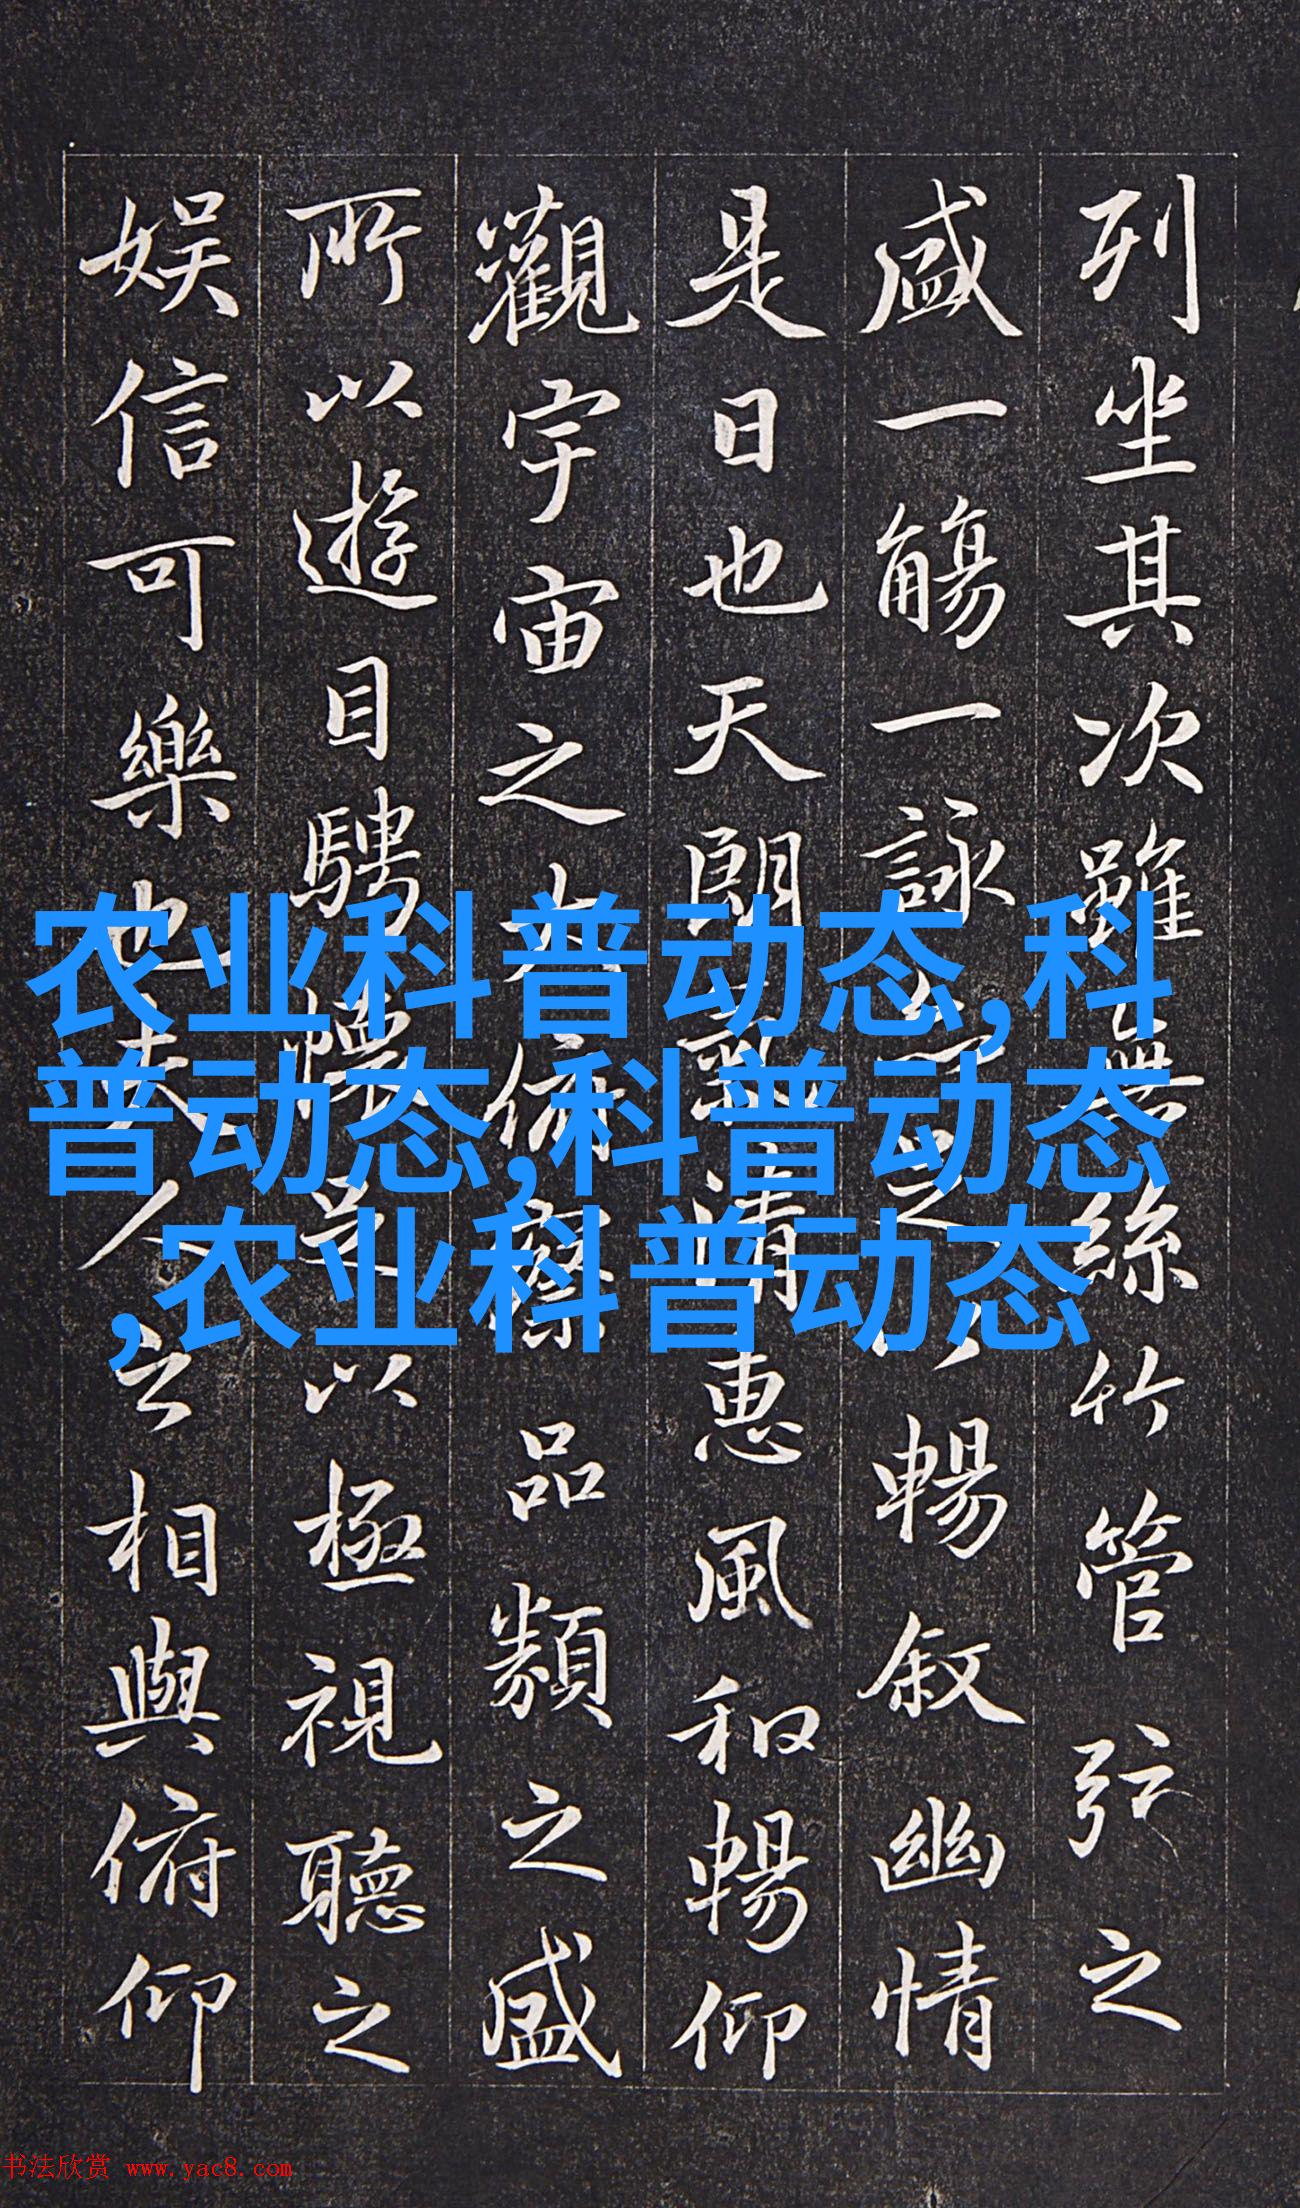 列坐其次雖無絲竹管弦之
盛一觴一詠亦足以暢敘幽情
是日也天朗氣清惠風和暢仰
觀宇宙之大俯察品類之盛
所以遊目騁懷足以極視聽之
娛信可樂也夫人之相與俯仰
农业科普动态,科
普动态,科普动态
,农业科普动态
书法欣赏 www.yac8.com